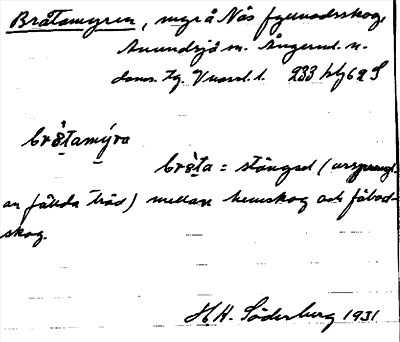 Bråtamyren, myr å Näs fyrvadsskog,
Anundsjö sn. Ångerml. n.
doms. tg. V nord. l. 233 h/j 62 S
brötamýra
bröta = stängsel (ursprungl.
av fällda träd) mellan hemskog och fäbod-
skog.
H H. Söderberg 1931